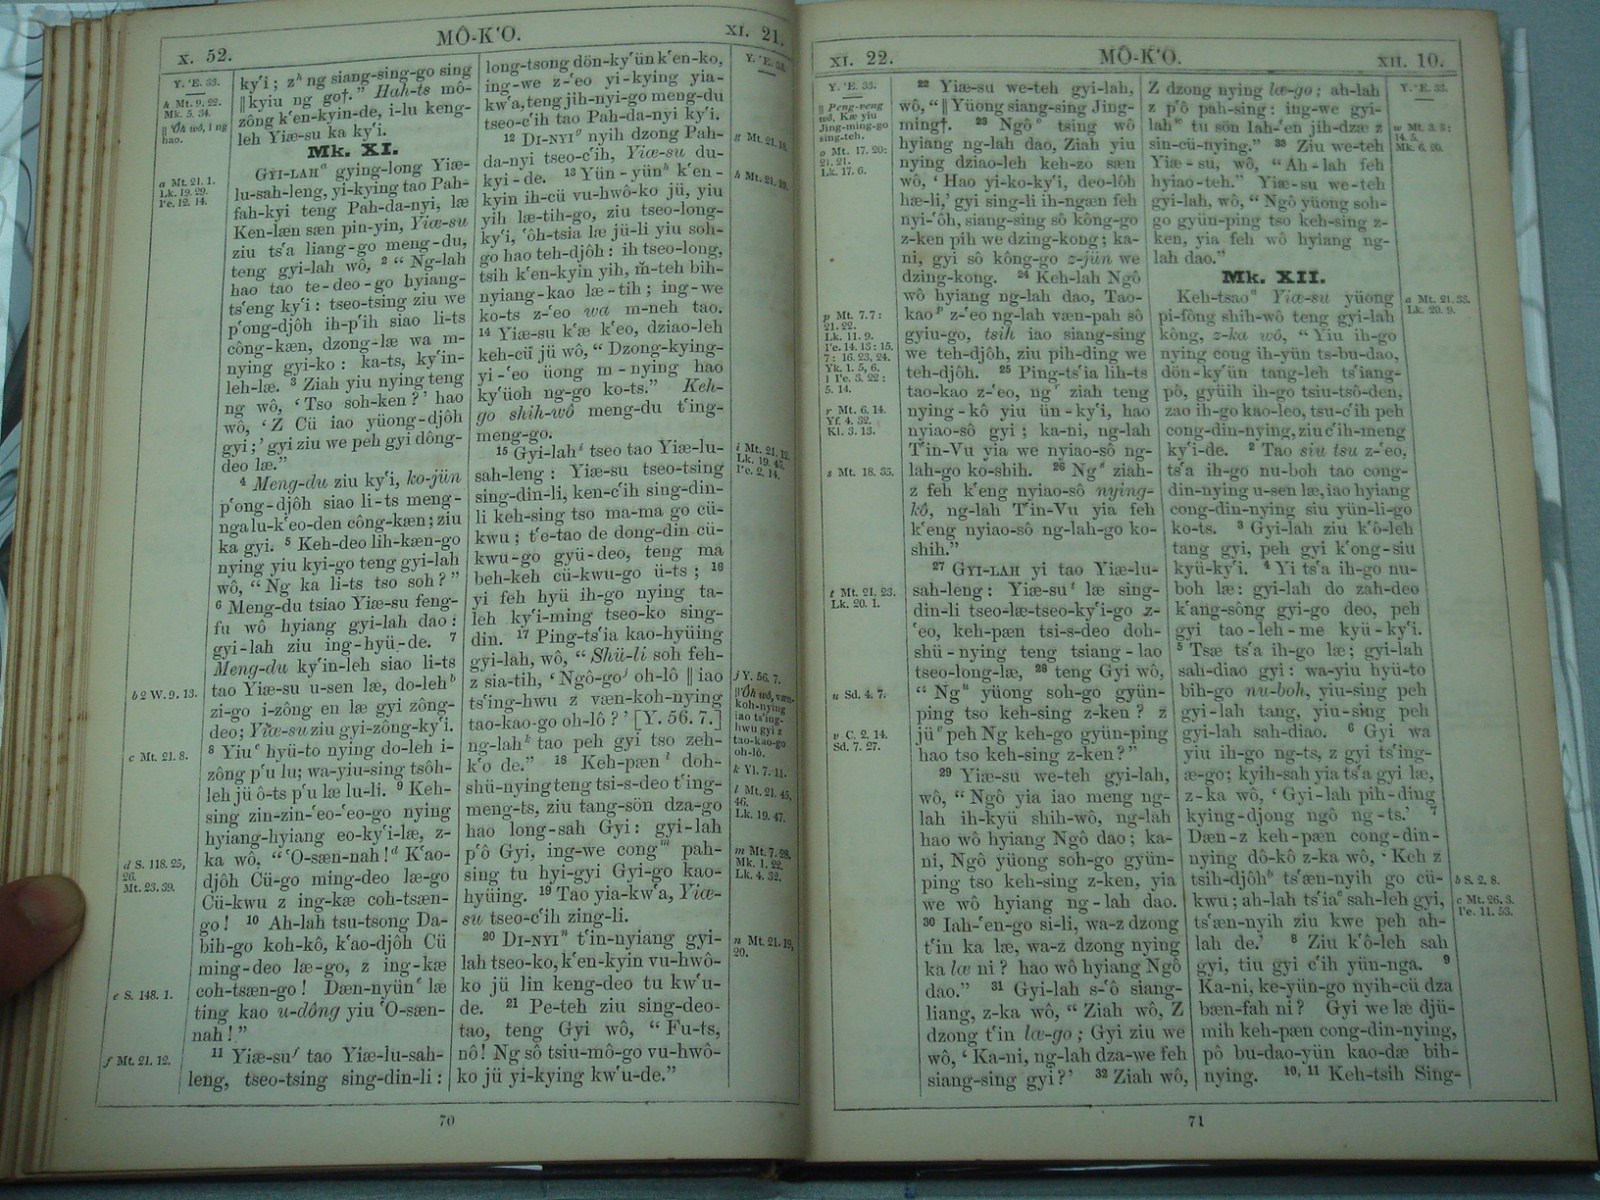 X. 52.
MÔ-K‘O.
XI. 21.
Y. ‘E. 33.
h Mt. 9. 22.
Mk. 5. 34.
|| ‘Ôh wô, i ng
hao.
a Mt. 21. 1.
Lk. 19. 29.
b 2 W. 9. 13.
c Mt. 21. 8.
d S. 118. 25,
26.
Mt. 23. 39.
e S. 148. 1.
f Mt. 21. 12.
ky‘i; zʰ ng siang-sing-go sing
|| kyiu ng go†.” Hah-ts mô-
zông k‘en-kyin-de, i-lu keng-
leh Yiæ-su ka ky‘i.
Mk. XI.
GYI-LAHᵃ gying-long Yiæ-
lu-sah-leng, yi-kying tao Pah-
fah-kyi teng Pah-da-nyi, læ
Ken-læn sæn pin-yin, Yiæ-su
ziu ts‘a liang-go meng-du,
teng gyi-lah wô, ² “Ng-lah
hao tao te-deo-go hyiang-
ts‘eng ky‘i: tseo-tsing ziu we
p‘ong-djôh ih-p‘ih siao li-ts
công-kæn, dzong-læ wa m-
nying gyi-ko: ka-ts, ky‘in-
leh-læ. ³ Ziah yiu nying teng
ng wô, ‘Tso soh-ken?’ hao
wô, ‘Z Cü iao yüong-djôh
gyi;’ gyi ziu we peh gyi dông-
deo læ.”
⁴ Meng-du ziu ky‘i, ko-jün
p‘ong-djôh siao li-ts meng-
nga lu-k‘eo-den công-kæn; ziu
ka gyi. ⁵ Keh-deo lih-kæn-go
nying yiu kyi-go teng gyi-lah
wô, “Ng ka li-ts tso soh?”
⁶ Meng-du tsiao Yiæ-su feng-
fu wô hyiang gyi-lah dao:
gyi-lah ziu ing-hyü-de. ⁷
Meng-du ky‘in-leh siao li-ts
tao Yiæ-su u-sen læ, do-lehᵇ
zi-go i-zông en læ gyi zông-
deo; Yiæ-su ziu gyi-zông-ky‘i.
⁸ Yiuᶜ hyü-to nying do-leh i-
zông p‘u lu; wa-yiu-sing tsôh-
leh jü ô-ts p‘u læ lu-li. ⁹ Keh-
sing zin-zin-‘eo-‘eo-go nying
hyiang-hyiang eo-ky‘i-læ, z-
ka wô, “‘O-sæn-nah!ᵈ K‘ao-
djôh Cü-go ming-deo læ-go
Cü-kwu z ing-kæ coh-tsæn-
go! ¹⁰ Ah-lah tsu-tsong Da-
bih-go koh-kô, k‘ao-djôh Cü
ming-deo læ-go, z ing-kæ
coh-tsæn-go! Dæn-nyünᵉ læ
ting kao u-dông yiu ‘O-sæn-
nah!”
¹¹ Yiæ-suᶠ tao Yiæ-lu-sah-
leng, tseo-tsing sing-din-li:
long-tsong dön-ky‘ün k‘en-ko,
ing-we z-‘eo yi-kying yia-
kw‘a, teng jih-nyi-go meng-du
tseo-c‘ih tao Pah-da-nyi ky‘i.
¹² DI-NYIᵍ nyih dzong Pah-
da-nyi tseo-c‘ih, Yiæ-su du-
kyi-de. ¹³ Yün-yünʰ k‘en-
kyin ih-cü vu-hwô-ko jü, yiu
yih læ-tih-go, ziu tseo-long-
ky‘i, ‘ôh-tsia læ jü-li yiu soh-
go hao teh-djôh: ih tseo-long,
tsih k‘en-kyin yih, m̆-teh bih-
nyiang-kao læ-tih; ing-we
ko-ts z-‘eo wa m-neh tao.
¹⁴ Yiæ-su k‘æ k‘eo, dziao-leh
keh-cü jü wô, “Dzong-kying-
yi-‘eo üong m-nying hao
ky‘üoh ng-go ko-ts.” Keh-
go shih-wô meng-du t‘ing-
meng-go.
¹⁵ Gyi-lahⁱ tseo tao Yiæ-lu-
sah-leng: Yiæ-su tseo-tsing
sing-din-li, ken-c‘ih sing-din-
li keh-sing tso ma-ma go cü-
kwu; t‘e-tao de dong-din cü-
kwu-go gyü-deo, teng ma
beh-keh cü-kwu-go ü-ts; ¹⁶
yi feh hyü ih-go nying ta-
leh ky‘i-ming tseo-ko sing-
din. ¹⁷ Ping-ts‘ia kao-hyüing
gyi-lah, wô, “Shü-li soh feh-
z sia-tih, ‘Ngô-goʲ oh-lô || iao
ts‘ing-hwu z væn-koh-nying
tao-kao-go oh-lô?’ [Y. 56. 7.]
ng-lahᵏ tao peh gyi tso zeh-
k‘o de.” ¹⁸ Keh-pænˡ doh-
shü-nying teng tsi-s-deo t‘ing-
meng-ts, ziu tang-sön dza-go
hao long-sah Gyi: gyi-lah
p‘ô Gyi, ing-we congᵐ pah-
sing tu hyi-gyi Gyi-go kao-
hyüing. ¹⁹ Tao yia-kw‘a, Yiæ-
su tseo-c‘ih zing-li.
²⁰ DI-NYIⁿ t‘in-nyiang gyi-
lah tseo-ko, k‘en-kyin vu-hwô-
ko jü lin keng-deo tu kw‘u-
de. ²¹ Pe-teh ziu sing-deo-
tao, teng Gyi wô, “Fu-ts,
nô! Ng sô tsiu-mô-go vu-hwô-
ko jü yi-kying kw‘u-de.”
h Mt. 21. 19.
i Mt. 21. 12.
Lk. 19. 45.
j Y. 56. 7.
koh-nying
iao ts‘ing-
hwu gyi z
tao-kao-go
oh-lô.
k Yl. 7. 11.
l Mt. 21. 45,
46.
Lk. 19. 47.
m Mt. 7. 28.
Mk. 1. 22.
Lk. 4. 32.
n Mt. 21. 19,
20.
70
XI. 22.
MÔ-K‘O.
XII. 10.
Y. ‘E. 33.
|| Peng-veng
wô, Kæ yiu
Jing-ming-go
sing-teh.
o Mt. 17. 20:
21. 21.
Lk. 17. 6.
p Mt. 7. 7:
21. 22.
Lk. 11. 9.
r Mt. 6. 14.
Yf. 4. 32.
Kl. 3. 13.
s Mt. 18. 35.
t Mt. 21. 23.
Lk. 20. 1.
u Sd. 4. 7.
v C. 2. 14.
Sd. 7. 27.
²² Yiæ-su we-teh gyi-lah,
wô, “|| Yüong siang-sing Jing-
ming†. ²³ Ngôᵒ tsing wô
hyiang ng-lah dao, Ziah yiu
nying dziao-leh keh-zo sæn
wô, ‘Hao yi-ko-ky‘i, deo-lôh
hæ-li,’ gyi sing-li ih-ngæn feh
nyi-‘ôh, siang-sing sô kông-go
z-ken pih we dzing-kong; ka-
ni, gyi sô kông-go z-jün we
dzing-kong. ²⁴ Keh-lah Ngô
wô hyiang ng-lah dao, Tao-
kaoᵖ z-‘eo ng-lah væn-pah sô
gyiu-go, tsih iao siang-sing
we teh-djôh, ziu pih-ding we
teh-djôh. ²⁵ Ping-ts‘ia lih-ts
tao-kao z-‘eo, ngʳ ziah teng
nying-kô yiu ün-ky‘i, hao
nyiao-sô gyi; ka-ni, ng-lah
T‘in-Vu yia we nyiao-sô ng-
lah-go ko-shih. ²⁶ Ngˢ ziah-
z feh k‘eng nyiao-sô nying-
kô, ng-lah T‘in-Vu yia feh
k‘eng nyiao-sô ng-lah-go ko-
shih.”
²⁷ GYI-LAH yi tao Yiæ-lu-
sah-leng: Yiæ-suᵗ læ sing-
din-li tseo-læ-tseo-ky‘i-go z-
‘eo, keh-pæn tsi-s-deo doh-
shü-nying teng tsiang-lao
tseo-long-læ, ²⁸ teng Gyi wô,
“Ngᵘ yüong soh-go gyün-
ping tso keh-sing z-ken? z
jüᵛ peh Ng keh-go gyün-ping
hao tso keh-sing z-ken?”
²⁹ Yiæ-su we-teh gyi-lah,
wô, “Ngô yia iao meng ng-
lah ih-kyü shih-wô, ng-lah
hao wô hyiang Ngô dao; ka-
ni, Ngô yüong soh-go gyün-
ping tso keh-sing z-ken, yia
we wô hyiang ng-lah dao.
³⁰ Iah-‘en-go si-li, wa-z dzong
t‘in ka læ, wa-z dzong nying
ka læ ni? hao wô hyiang Ngô
dao.” ³¹ Gyi-lah s-‘ô siang-
liang, z-ka wô, “Ziah wô, Z
dzong t‘in læ-go; Gyi ziu we
wô, ‘Ka-ni, ng-lah dza-we feh
siang-sing gyi?’ ³² Ziah wô,
Z dzong nying læ-go; ah-lah
z p‘ô pah-sing: ing-we gyi-
lahʷ tu sön Iah-‘en jih-dzæ z
sin-cü-nying.” ³³ Ziu we-teh
Yiæ-su, wô, “Ah-lah feh
hyiao-teh.” Yiæ-su we-teh
gyi-lah, wô, “Ngô yüong soh-
go gyün-ping tso keh-sing z-
ken, yia feh wô hyiang ng-
lah dao.”
Mk. XII.
Keh-tsaoᵃ Yiæ-su yüong
pi-fông shih-wô teng gyi-lah
kông, z-ka wô, “Yiu ih-go
nying cong ih-yün ts-bu-dao,
dön-ky‘ün tang-leh ts‘iang-
pô, gyüih ih-go tsiu-tsô-den,
zao ih-go kao-leo, tsu-c‘ih peh
cong-din-nying, ziu c‘ih-meng
ky‘i-de. ² Tao siu tsu z-‘eo,
ts‘a ih-go nu-boh tao cong-
din-nying u-sen læ, iao hyiang
cong-din-nying siu yün-li-go
ko-ts. ³ Gyi-lah ziu k‘ô-leh
tang gyi, peh gyi k‘ong-siu
kyü-ky‘i. ⁴ Yi ts‘a ih-go nu-
boh læ: gyi-lah do zah-deo
k‘ang-sông gyi-go deo, peh
gyi tao-leh-me kyü-ky‘i.
⁵ Tsæ ts‘a ih-go læ; gyi-lah
sah-diao gyi: wa-yiu hyü-to
bih-go nu-boh, yiu-sing peh
gyi-lah tang, yiu-sing peh
gyi-lah sah-diao. ⁶ Gyi wa
yiu ih-go ng-ts, z gyi ts‘ing-
æ-go; kyih-sah yia ts‘a gyi læ,
z-ka wô, ‘Gyi-lah pih-ding
kying-djong ngô ng-ts.’ ⁷
Dæn-z keh-pæn cong-din-
nying dô-kô z-ka wô, ‘Keh z
tsih-djôhᵇ ts‘æn-nyih go cü-
kwu; ah-lah ts‘iaᶜ sah-leh gyi,
ts‘æn-nyih ziu kwe peh ah-
lah de.’ ⁸ Ziu k‘ô-leh sah
gyi, tiu gyi c‘ih yün-nga. ⁹
Ka-ni, ke-yün-go nyih-cü dza
bæn-fah ni? Gyi we læ djü-
mih keh-pæn cong-din-nying,
pô bu-dao-yün kao-dæ bih-
nying. ¹⁰, ¹¹ Keh-tsih Sing-
Y. ‘E. 33.
Mk. 6. 20.
a Mt. 21. 33.
Lk. 20. 9.
b S. 2. 8.
c Mt. 26. 3.
71